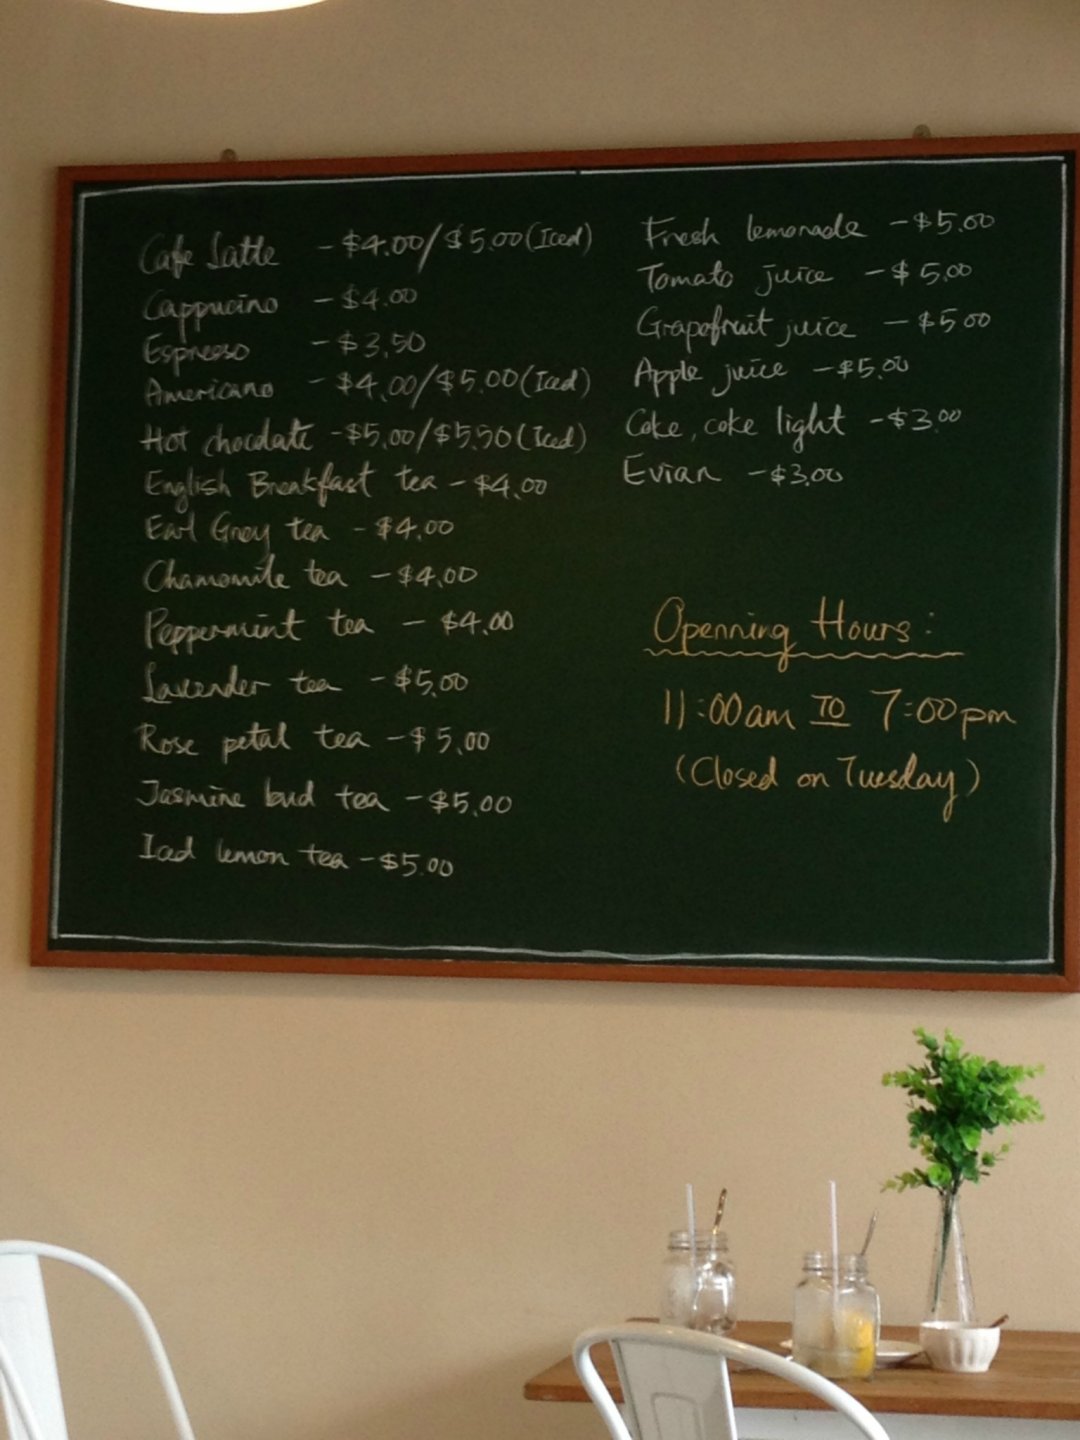 Cafe Latte - $4.00/$5.00 (Iced)
Cappucino - $4.00
Espresso - $3.50
Americano - $4.00/$5.00 (Iced)
Hot chocolate - $5.00/$5.50 (Iced)
English Breakfast tea - $4.00
Earl Grey tea - $4.00
Chamomile tea - $4.00
Peppermint tea - $4.00
Lavender tea - $5.00
Rose petal tea - $5.00
Jasmine bud tea - $5.00
Iced lemon tea - $5.00
Fresh lemonade - $5.00
Tomato juice - $5.00
Grapefruit juice - $5.00
Apple juice - $5.00
Coke, coke light - $3.00
Evian - $3.00
Openning Hours:
11:00am TO 7:00pm
(Closed on Tuesday)